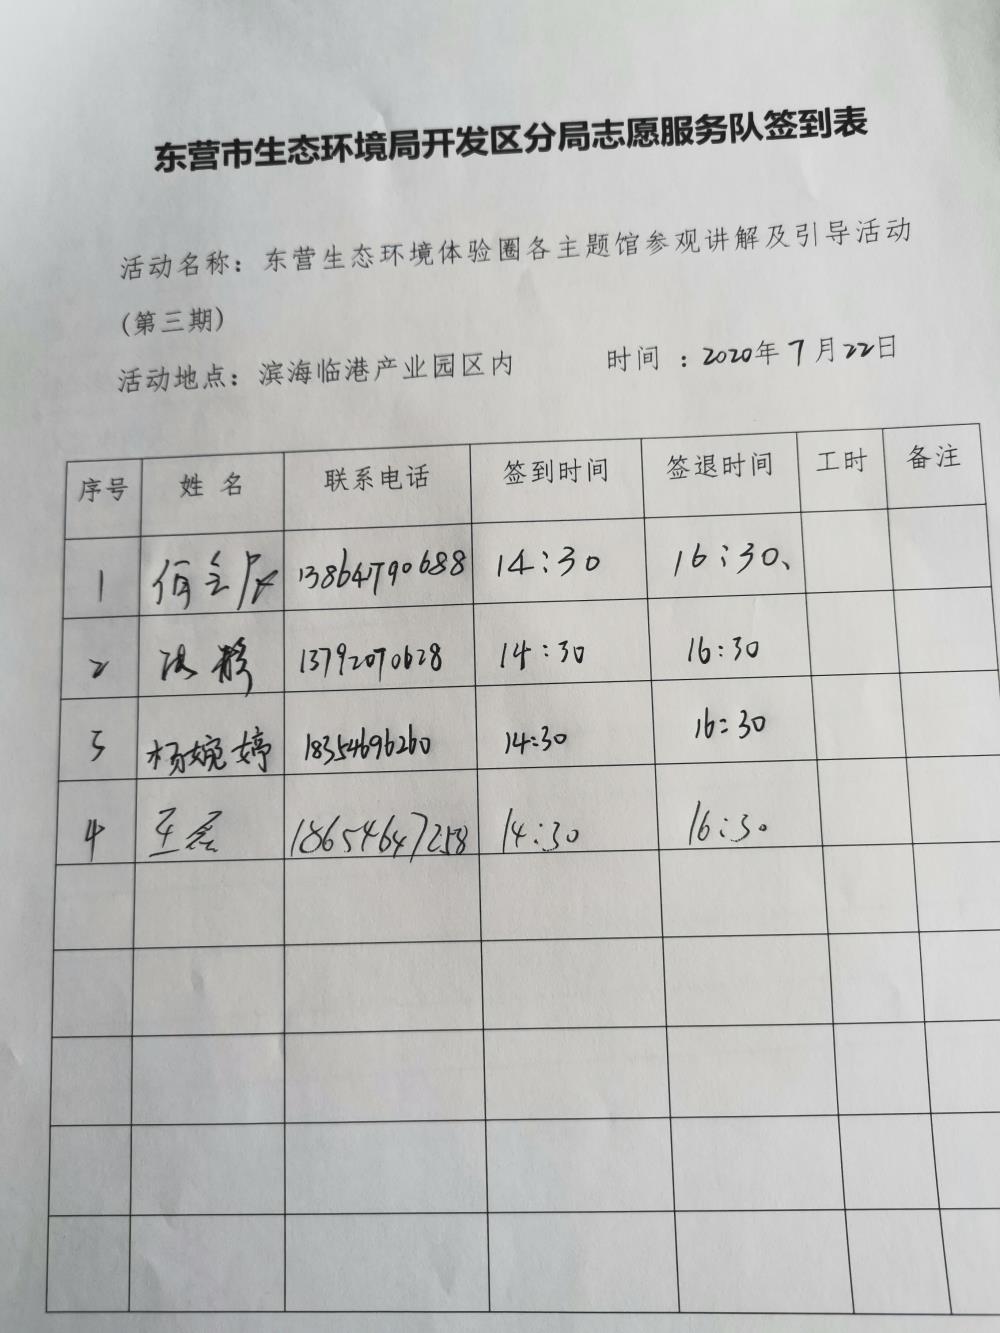 东营市生态环境局开发区分局志愿服务队签到表
活动名称：东营生态环境体验圈各主题馆参观讲解及引导活动
(第三期)
活动地点：滨海临港产业园区内 时间：2020年7月22日
序号 姓名 联系电话 签到时间 签退时间 工时 备注
1 13864790688 14:30 16:30、
2 13792070628 14:30 16:30
3 杨婉婷 18354696260 14:30 16:30
4 王磊 18654647258 14:30 16:30